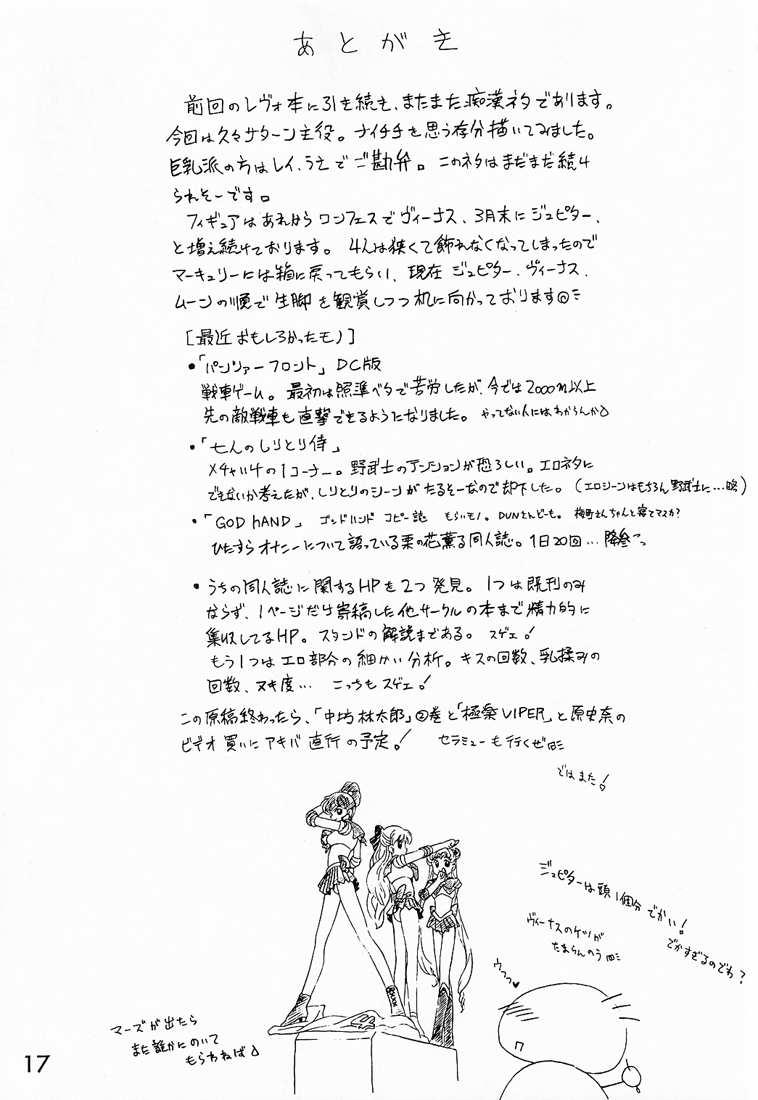 あとがき
前回のレヴォ本に引き続き、またまた痴漢ネタであります。
今回は久々サターン主役。ナイチチを思う存分描いてみました。
巨乳派の方はレイ、うえでご勘弁。このネタはまだまだ続け
られそーです。
フィギュアはあれからワンフェスでヴィーナス、3月末にジュピター、
と増え続けております。4人は狭くて飾れなくなってしまったので
マーキュリーには箱に戻ってもらい、現在ジュピター、ヴィーナス、
ムーンの順で生脚を観賞しつつ机に向かっております
[最近おもしろかったモノ]
・「パンツァーフロント」DC版
戦車ゲーム。最初は照準ベタで苦労したが、今では2000m以上
先の敵戦車も直撃できるようになりました。やってない人にはわからんか
・「七人のしりとり侍」
メチャイケの1コーナー。野武士のテンションが恐ろしい。エロネタに
できないか考えたが、しりとりのシーンがたるそーなので却下した。(エロシーンはもちろん野武士に…略)
・「GOD HAND」ゴッドハンド コピー誌 もらいモノ。DUNさんどーも。梅野さんちゃんと寝てマスか?
ひたすらオナニーについて語っている栗の花薫る同人誌。1日20回…降参っ
・うちの同人誌に関するHPを2つ発見。1つは既刊のみ
ならず、1ページだけ寄稿した他サークルの本まで精力的に
集収してるHP。スタンドの解説まである。スゲェ!
もう1つはエロ部分の細かい分析。キスの回数、乳揉みの
回数、ヌキ度…こっちもスゲェ!
この原稿終わったら、「中坊林太郎」②巻と「極楽VIPER」と原史奈の
ビデオ買いにアキバ直行の予定。! セラミューも行くぜ
ではまた!
ジュピターは頭1個分でかい!
でかすぎるのでわ?
ヴィーナスのケツが
たまらんのう
ウッフッ
マーズが出たら
また誰かにのいて
もらわねば
17